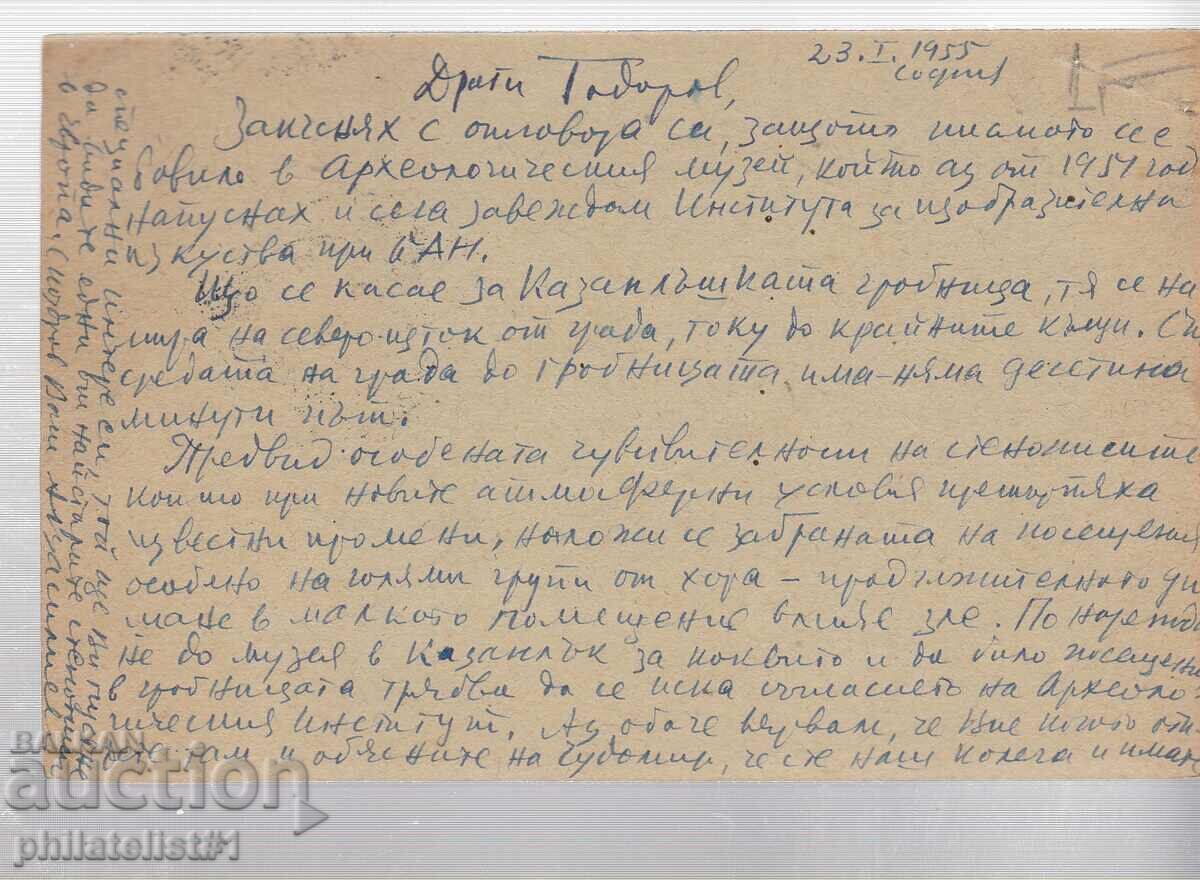 23.I.1955
София
Драги Тодоров,
Закъснях с отговора си, защото писмото се е
бавило в Археологическия музей, който аз от 1951 год
напуснах и сега завеждам Института за изобразителни
изкуства при БАН.
Що се касае за Казанлъшката гробница, тя се на
мира на североизток от града, току до крайните къщи. От
средата на града до гробницата има-няма десетина
минути път.
Предвид особената чувствителност на стенописите
които при новите атмосферни условия претърпяха
известни промени, наложи се забраната на посещения
особено на големи групи от хора – продължителното ди
шане в малкото помещение влияе зле. По нарежда
не до музея в Казанлък за каквито и да било посещения
в гробницата трябва да се иска съгласието на Археоло
гическия институт. Аз обаче вярвам, че Вие когато оти
дете там и обясните на Чудомир, че сте наш колега и имате
специални интереси, той ще Ви пусне
да видите едни от най-старите стенописи
в Европа. С поздрав Ваш Ив. Василиев
BALKAN
auction
philatelist#1